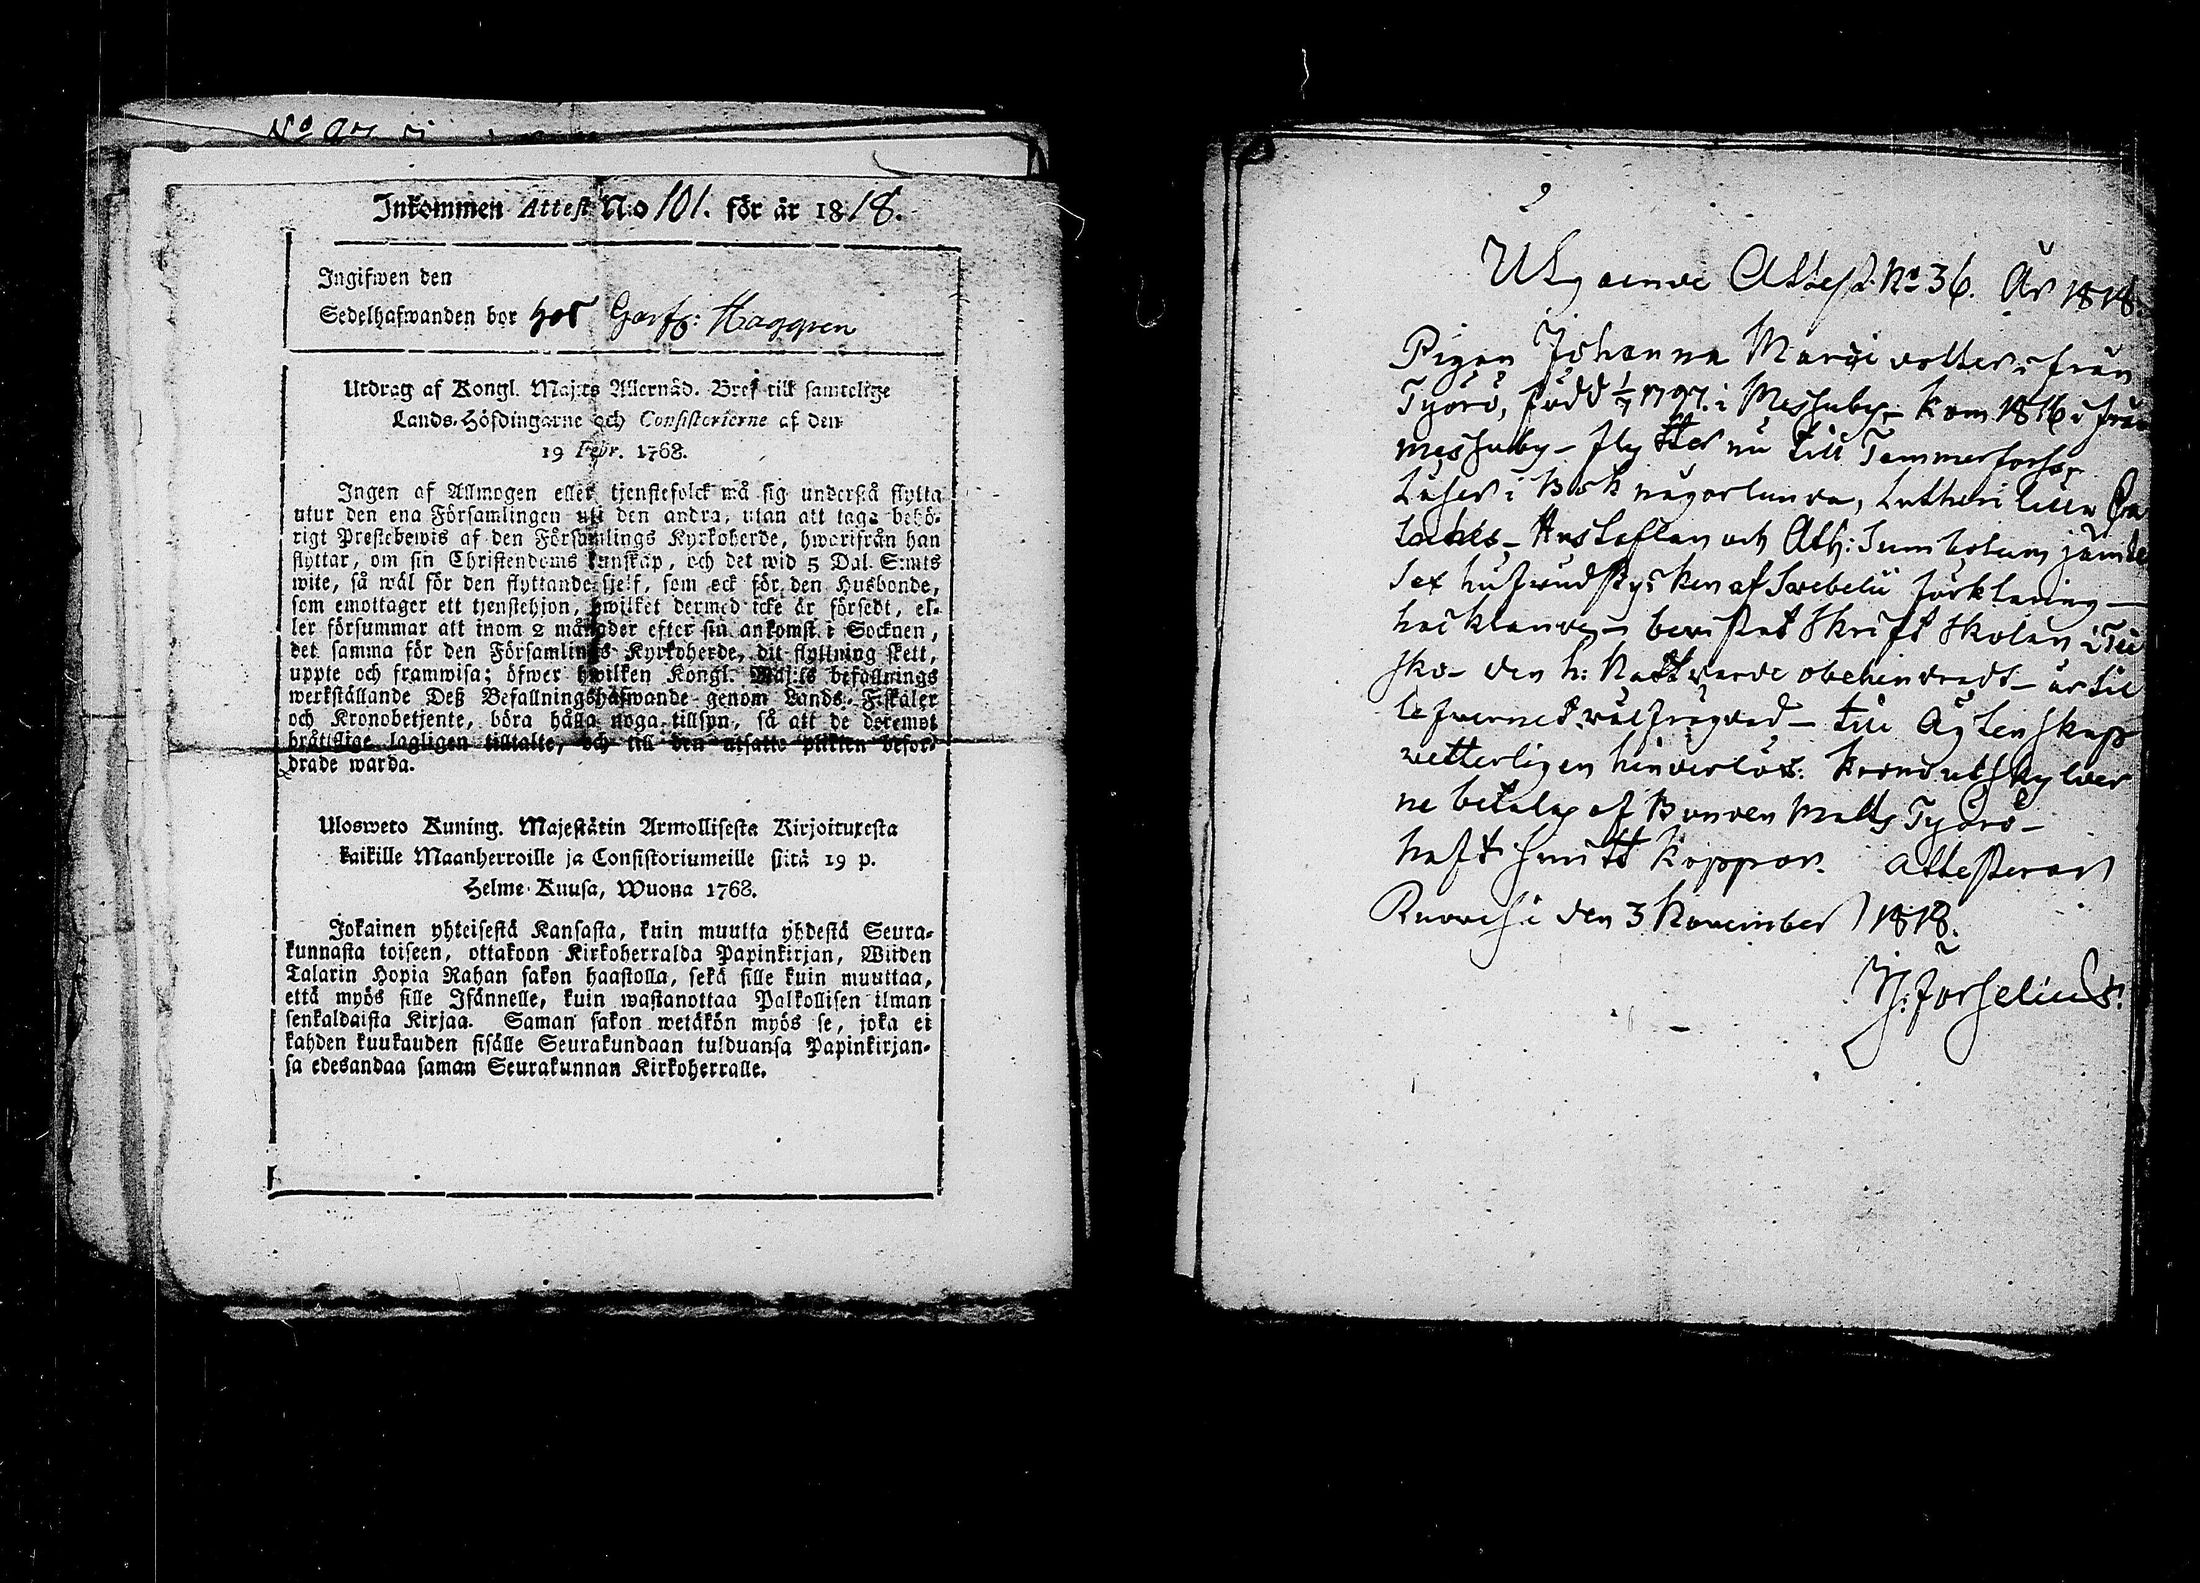 No 97
Inkommen Attest N:o 101. för år 1818.
Ingifwen den
Sedelhafwanden bor hos Garf: Haggren
Utdrag af Kongl. Maj:ts Allernåd. Bref till samtelige
Lands-Höfdingarne och Consistorierne af den
19 Febr. 1768.
Ingen af Allmogen eller tjenstefolck må sig understå flytta
utur den ena Församlingen uti den andra, utan att taga behö-
rigt Prestebewis af den Församlings Kyrkoherde, hwarifrån han
flyttar, om sin Christendoms kunskap, och det wid 5 Dal. S:mts
wite, så wäl för den flyttande sjelf, som ock för den Husbonde,
som emottager ett tjenstehjon, hwilket dermed icke är försedt, el-
ler försummar att inom 2 månader efter sin ankomst i Socknen,
det samma för den Församlings Kyrkoherde, dit flyttning skett,
uppte och framwisa; öfwer hwilken Kongl. Maj:ts befallnings
werkställande Deß Befallningshafwande genom Lands-Fiskaler
och Kronobetjente, böra hålla noga tillsyn, så att de deremot
bråttslige lagligen tilltalte, och till den utsatte plikten befor-
drade warda.
Uloswetto Kuning. Majestätin Armollisesta Kirjoituxesta
kaikille Maanherroille ja Consistoriumeille siitä 19 p.
Helme-Kuusa, Wuona 1768.
Jokainen yhteisestä Kansasta, kuin muutta yhdestä Seura-
kunnasta toiseen, ottakoon Kirkoherralda Papinkirjan, Wiiden
Talarin Hopia Rahan sakon haastolla, sekä sille kuin muuttaa,
että myös sille Isännelle, kuin wastanottaa Palkollisen ilman
senkaldaista Kirjaa. Saman sakon wetäkön myös se, joka ei
kahden kuukauden sisälle Seurakundaan tulduansa Papinkirjan-
sa edesandaa saman Seurakunnan Kirkoherralle.
Utgående Attest. No 36. År 1818.
Pigan Johanna Maria dotter ifrån
Työrö, född 1/7 1797. i Messuby – kom 1816 ifrån
Messuby – flyttar nu till Tammerforss,
Läser i Bok någorlunda, Lutheri lilla Ca
taches – Hustaflan och Ath: Sumbolum jämte
sex hufwudstycken af Swebelii förklaring –
hacklande – bewistat Skriftskolan i Tii
sko – den h: Nattward obehindradt – är till
lefwernet wälfrägdad – till Ägtenskap
wetterligen hinderlös. Kronoutskylder
ne betalas af Bonden Matts Työrö –
haft smitt koppor. Attesterar
Ruowesi den 3 November 1818.
H: Forselius.